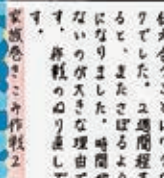 りでした。2週間程
ると、またさぼるよう
になりました。時間
ないのが大きな理由で
す。作戦のねり直しで
す。
家族巻きこみ作戦2